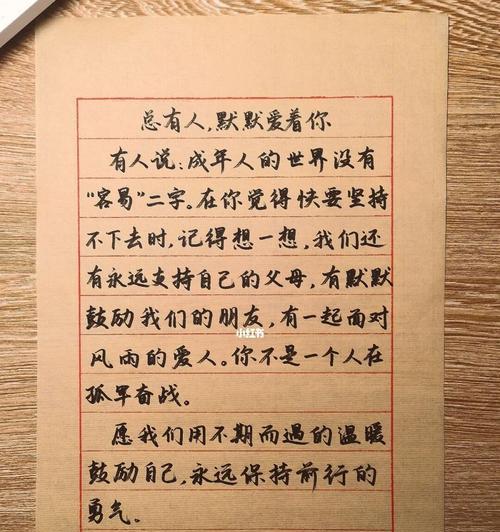 总有人，默默爱着你
有人说：成年人的世界没有
“容易”二字。在你觉得快要坚持
不下去时，记得想一想，我们还
有永远支持自己的父母，有默默
鼓励我们的朋友，有一起面对
小红书
风雨的爱人。你不是一个人在
孤军奋战。
愿我们用不期而遇的温暖
鼓励自己，永远保持前行的
勇气。